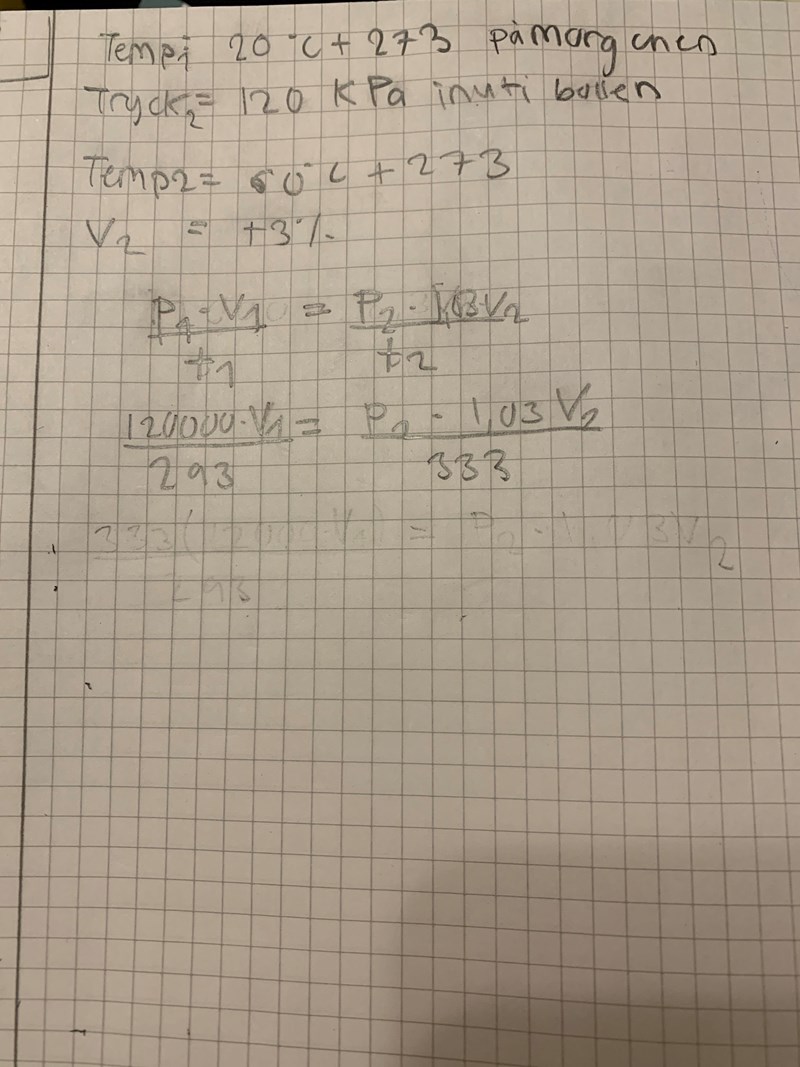 Temp1 20°C + 273 på morgonen
Tryck2 = 120 KPa inuti bollen
Temp2 = 60°C + 273
V2 = +3%
P1 · V1 = P2 · 1,03 · V2
t1 t2
120000 · V1 = P2 · 1,03 V2
293 333
333( · V1) = P2 · 1,03 V2
293